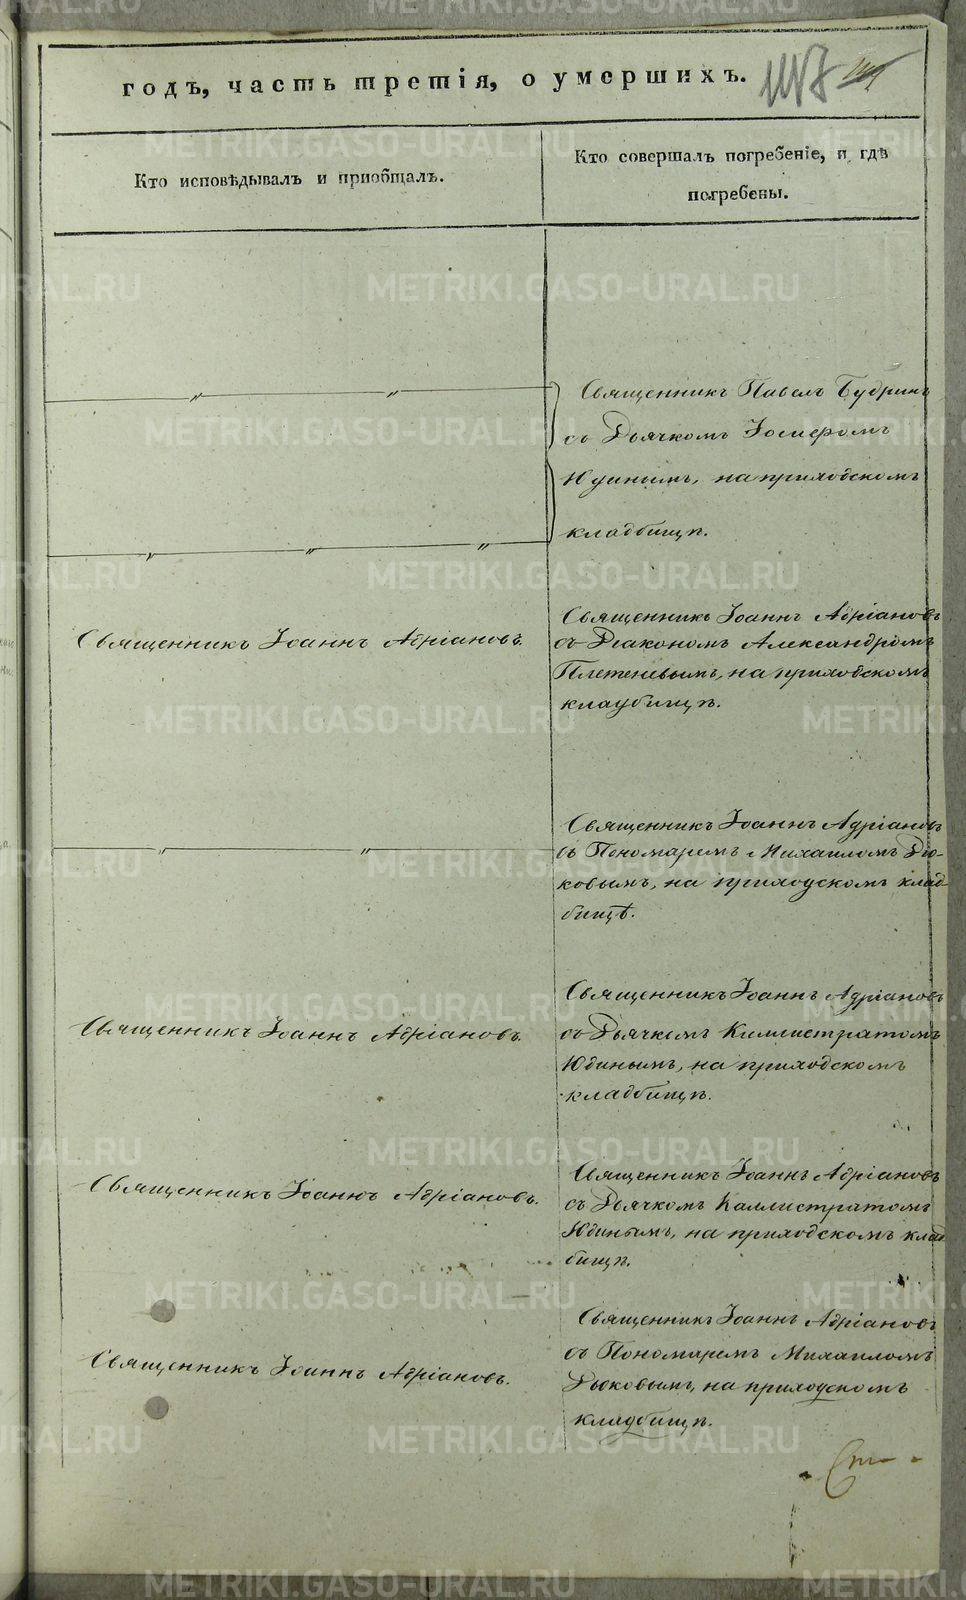 годъ, часть третія, о умершихъ.
Кто исповѣдывалъ и приобщалъ.
Кто совершалъ погребеніе, и гдѣ
погребены.
Священникъ Павелъ Будринъ
съ Дьячкомъ Іосифомъ
Юдинымъ, на приходскомъ
кладбищѣ.
Священникъ Іоаннъ Адріановъ.
Священникъ Іоаннъ Адріановъ
съ Діакономъ Александромъ
Плетеневымъ, на приходскомъ
кладбищѣ.
Священникъ Іоаннъ Адріановъ
съ Пономаремъ Михаиломъ Дю-
ковымъ, на приходскомъ клад-
бищѣ.
Священникъ Іоаннъ Адріановъ.
Священникъ Іоаннъ Адріановъ
съ Дьячкомъ Каллистратомъ
Юдинымъ, на приходскомъ
кладбищѣ.
Священникъ Іоаннъ Адріановъ.
Священникъ Іоаннъ Адріановъ
съ Дьячкомъ Каллистратомъ
Юдинымъ, на приходскомъ клад
бищѣ.
Священникъ Іоаннъ Адріановъ.
Священникъ Іоаннъ Адріановъ
съ Пономаремъ Михаиломъ
Дюковымъ, на приходскомъ
кладбищѣ.
METRIKI.GASO-URAL.RU